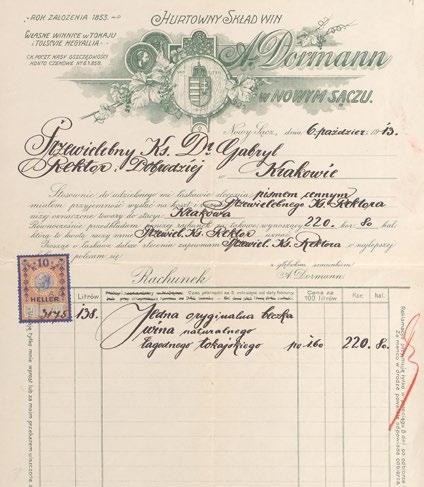 ROK ZAŁOŻENIA 1853.
HURTOWNY SKŁAD WIN
WŁASNE WINNICE W TOKAJU
I TOLSTVIE HEGYALLIA
C.K. POCZT. KASY OSZCZĘDNOŚCI
KONTO CZEKOWE Nº 61.858.
A. Dormann
W NOWYM SĄCZU.
Nowy Sącz, dnia 6. październ. 1913.
Przewielebny Ks. Dr. Gabryl
Rektor Dobrodziej
w Krakowie
Stosownie do udzielonego mi łaskawie zlecenia pismem cennym
miałem przyjemność wysłać na koszt Przewielebnego Ks. Rektora
niżej oznaczone towary do stacyi Krakowa
Równocześnie przedkładam rachunek wynoszący 220. kor. 80 hal.
którą to kwotę Przewiel. Ks. Rektor
Prosząc o łaskawe dalsze zlecenia zapewniam Przewiel. Ks. Rektora o najlepszej
polecam się
z głębokim szacunkiem
A. Dormann.
Rachunek
10
HELLER
Litrów
Cena za
100 litrów
Kor. hal.
138. Jedna oryginalna beczka
wina naturalnego
łagodnego tokajskiego po 160 220. 80.